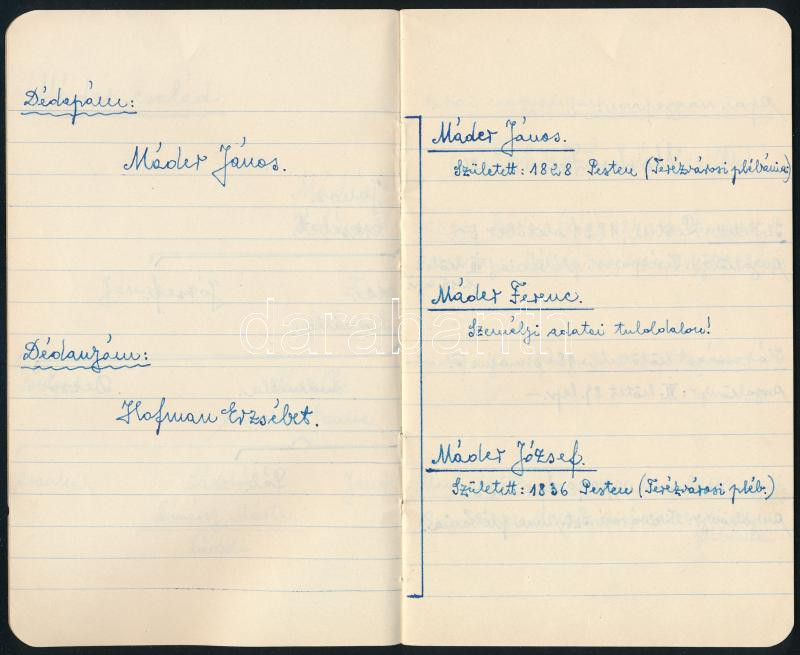 Dédapám:
Máder János.
Dédanyám:
Hofman Erzsébet.
Máder János.
Született: 1828 Pesten (Terézvárosi plébánia)
Máder Ferenc.
Személyi adatai tuloldalon!
Máder József.
Született: 1836 Pesten (Terézvárosi pléb.)
darabanth